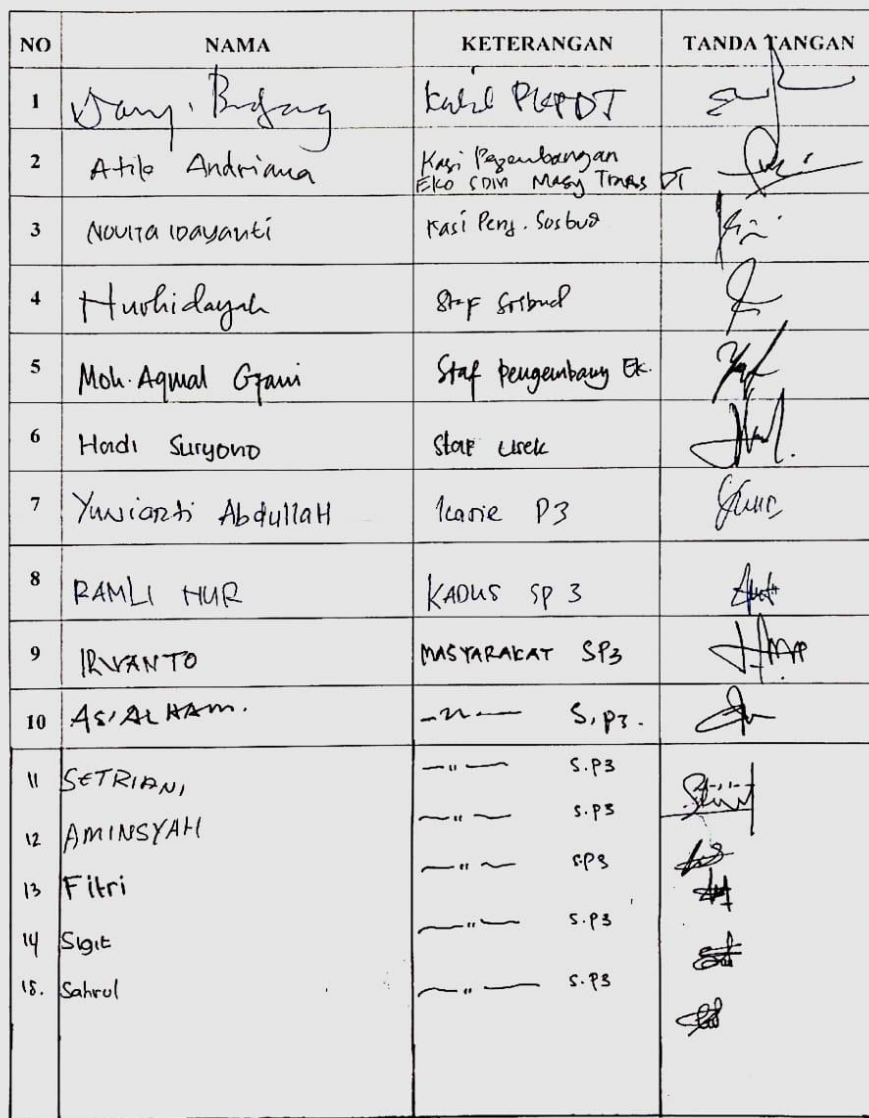 NO NAMA KETERANGAN TANDA TANGAN
1 Kabid PKPDT
2 Atik Andriana Kasi Pengembangan
Eko SDM Masy Trans DT
3 Novita idayanti Kasi Peng. Sosbud
4 Nurhidayah Staf Sosbud
5 Moh. Aqmal Staf pengembang Ek.
6 Hadi Suryono Staf
7 Yuniarti AbdullaH P3
8 RAMLI NUR KADUS SP 3
9 IRVANTO MASYARAKAT SP3
10 AS'ALHAM. -"- S.P3.
11 SETRIANI -"- S.P3
12 AMINSYAH -"- S.P3
13 Fitri -"- S.P3
14 Sigit -"- S.P3
15. Sahrul -"- S.P3